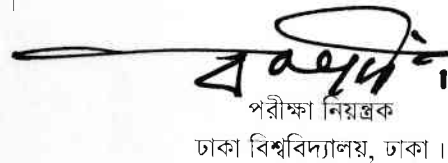 পরীক্ষা নিয়ন্ত্রক
ঢাকা বিশ্ববিদ্যালয়, ঢাকা।